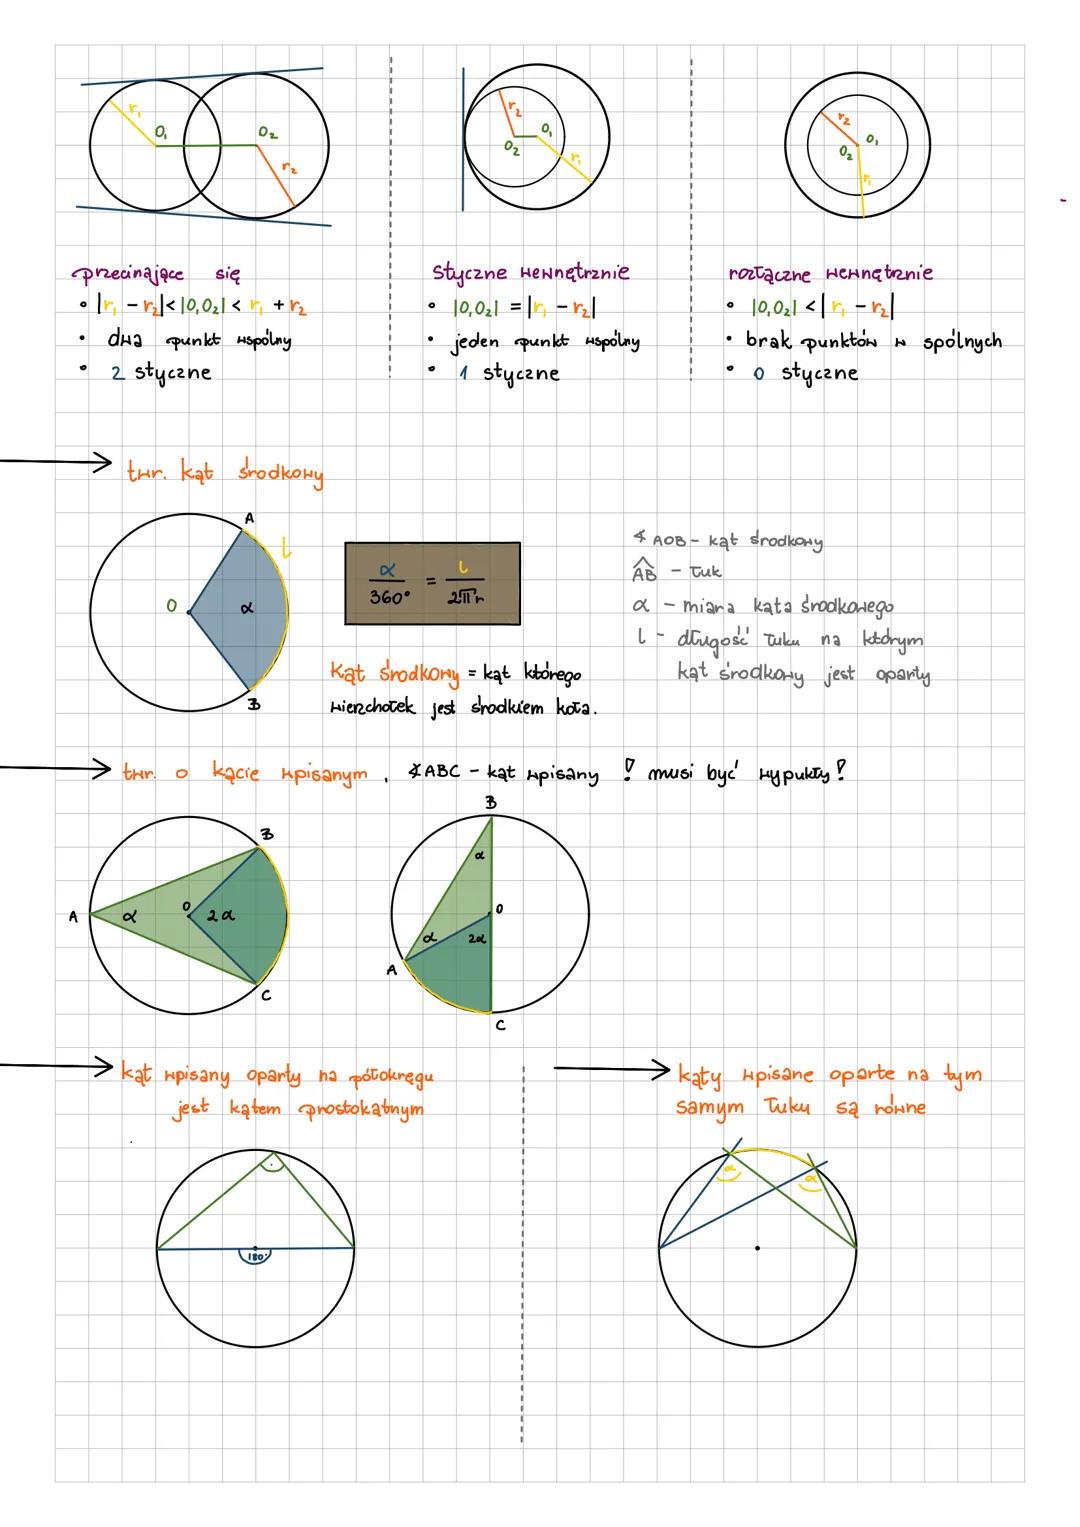 r₁ O₁ O₂ r₂
r₂ O₁ O₂ r₁
r₂ O₁ O₂ r₁
przecinające się
• |r₁ - r₂| < |O₁O₂| < r₁ + r₂
• dwa punkt wspólny
• 2 styczne
styczne wewnętrznie
• |O₁O₂| = |r₁ - r₂|
• jeden punkt wspólny
• 1 styczne
rozłączne wewnętrznie
• |O₁O₂| < |r₁ - r₂|
• brak punktów w spólnych
• 0 styczne
twr. kąt środkowy
A
l
O α
B
α/360° = l/2πr
Kąt środkowy = kąt którego
wierzchołek jest środkiem koła.
∢ AOB - kąt środkowy
A͡B - łuk
α - miara kąta środkowego
l - długość łuku na którym
kąt środkowy jest oparty
twr. o kącie wpisanym, ∢ABC - kąt wpisany ! musi być wypukły!
B
A α O 2α
C
B
α
O
α 2α
A
C
kąt wpisany oparty na półokręgu
jest kątem prostokątnym
180°
kąty wpisane oparte na tym
samym łuku są równe
α α